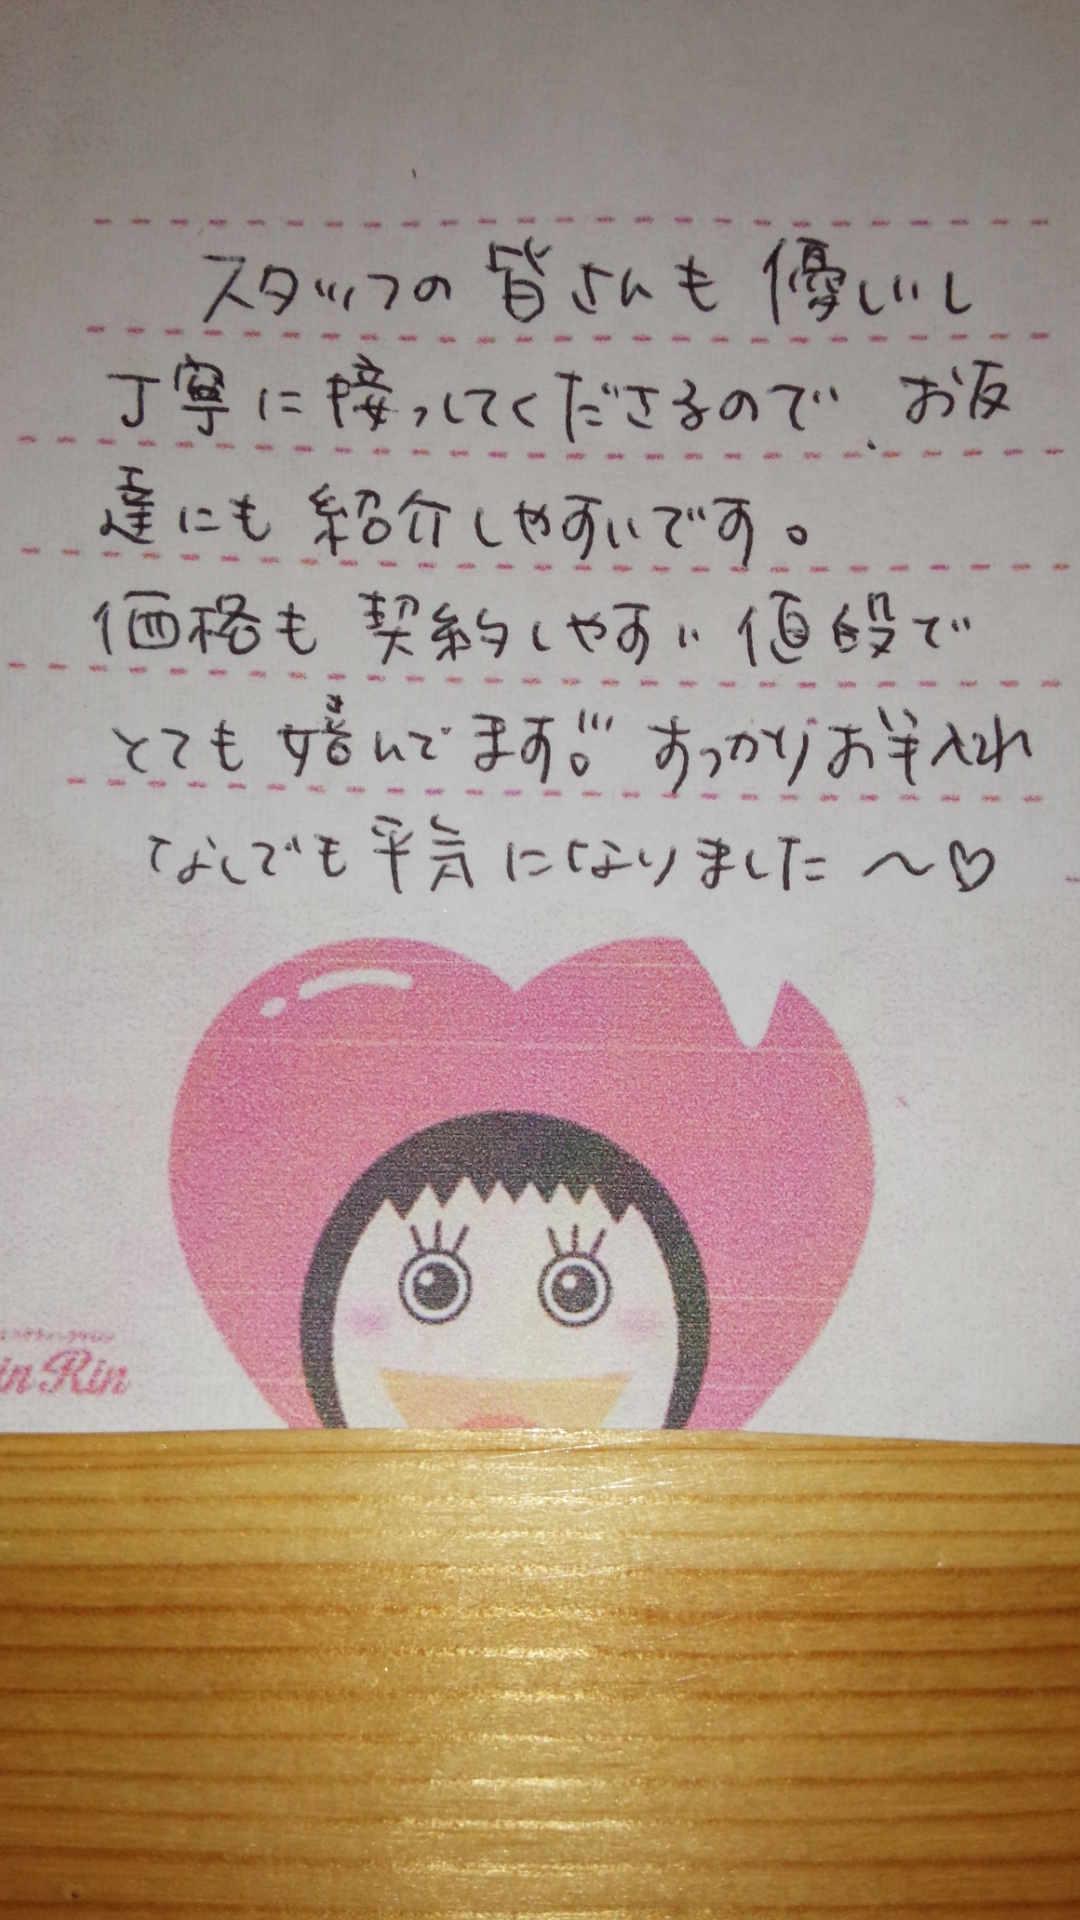 スタッフの皆さんも優しいし
丁寧に接してくださるので、お友
達にも紹介しやすいです。
価格も契約しやすい値段で
とても嬉んでます。!!! すっかりお手入れ
なしでも平気になりました～♡
in Rin